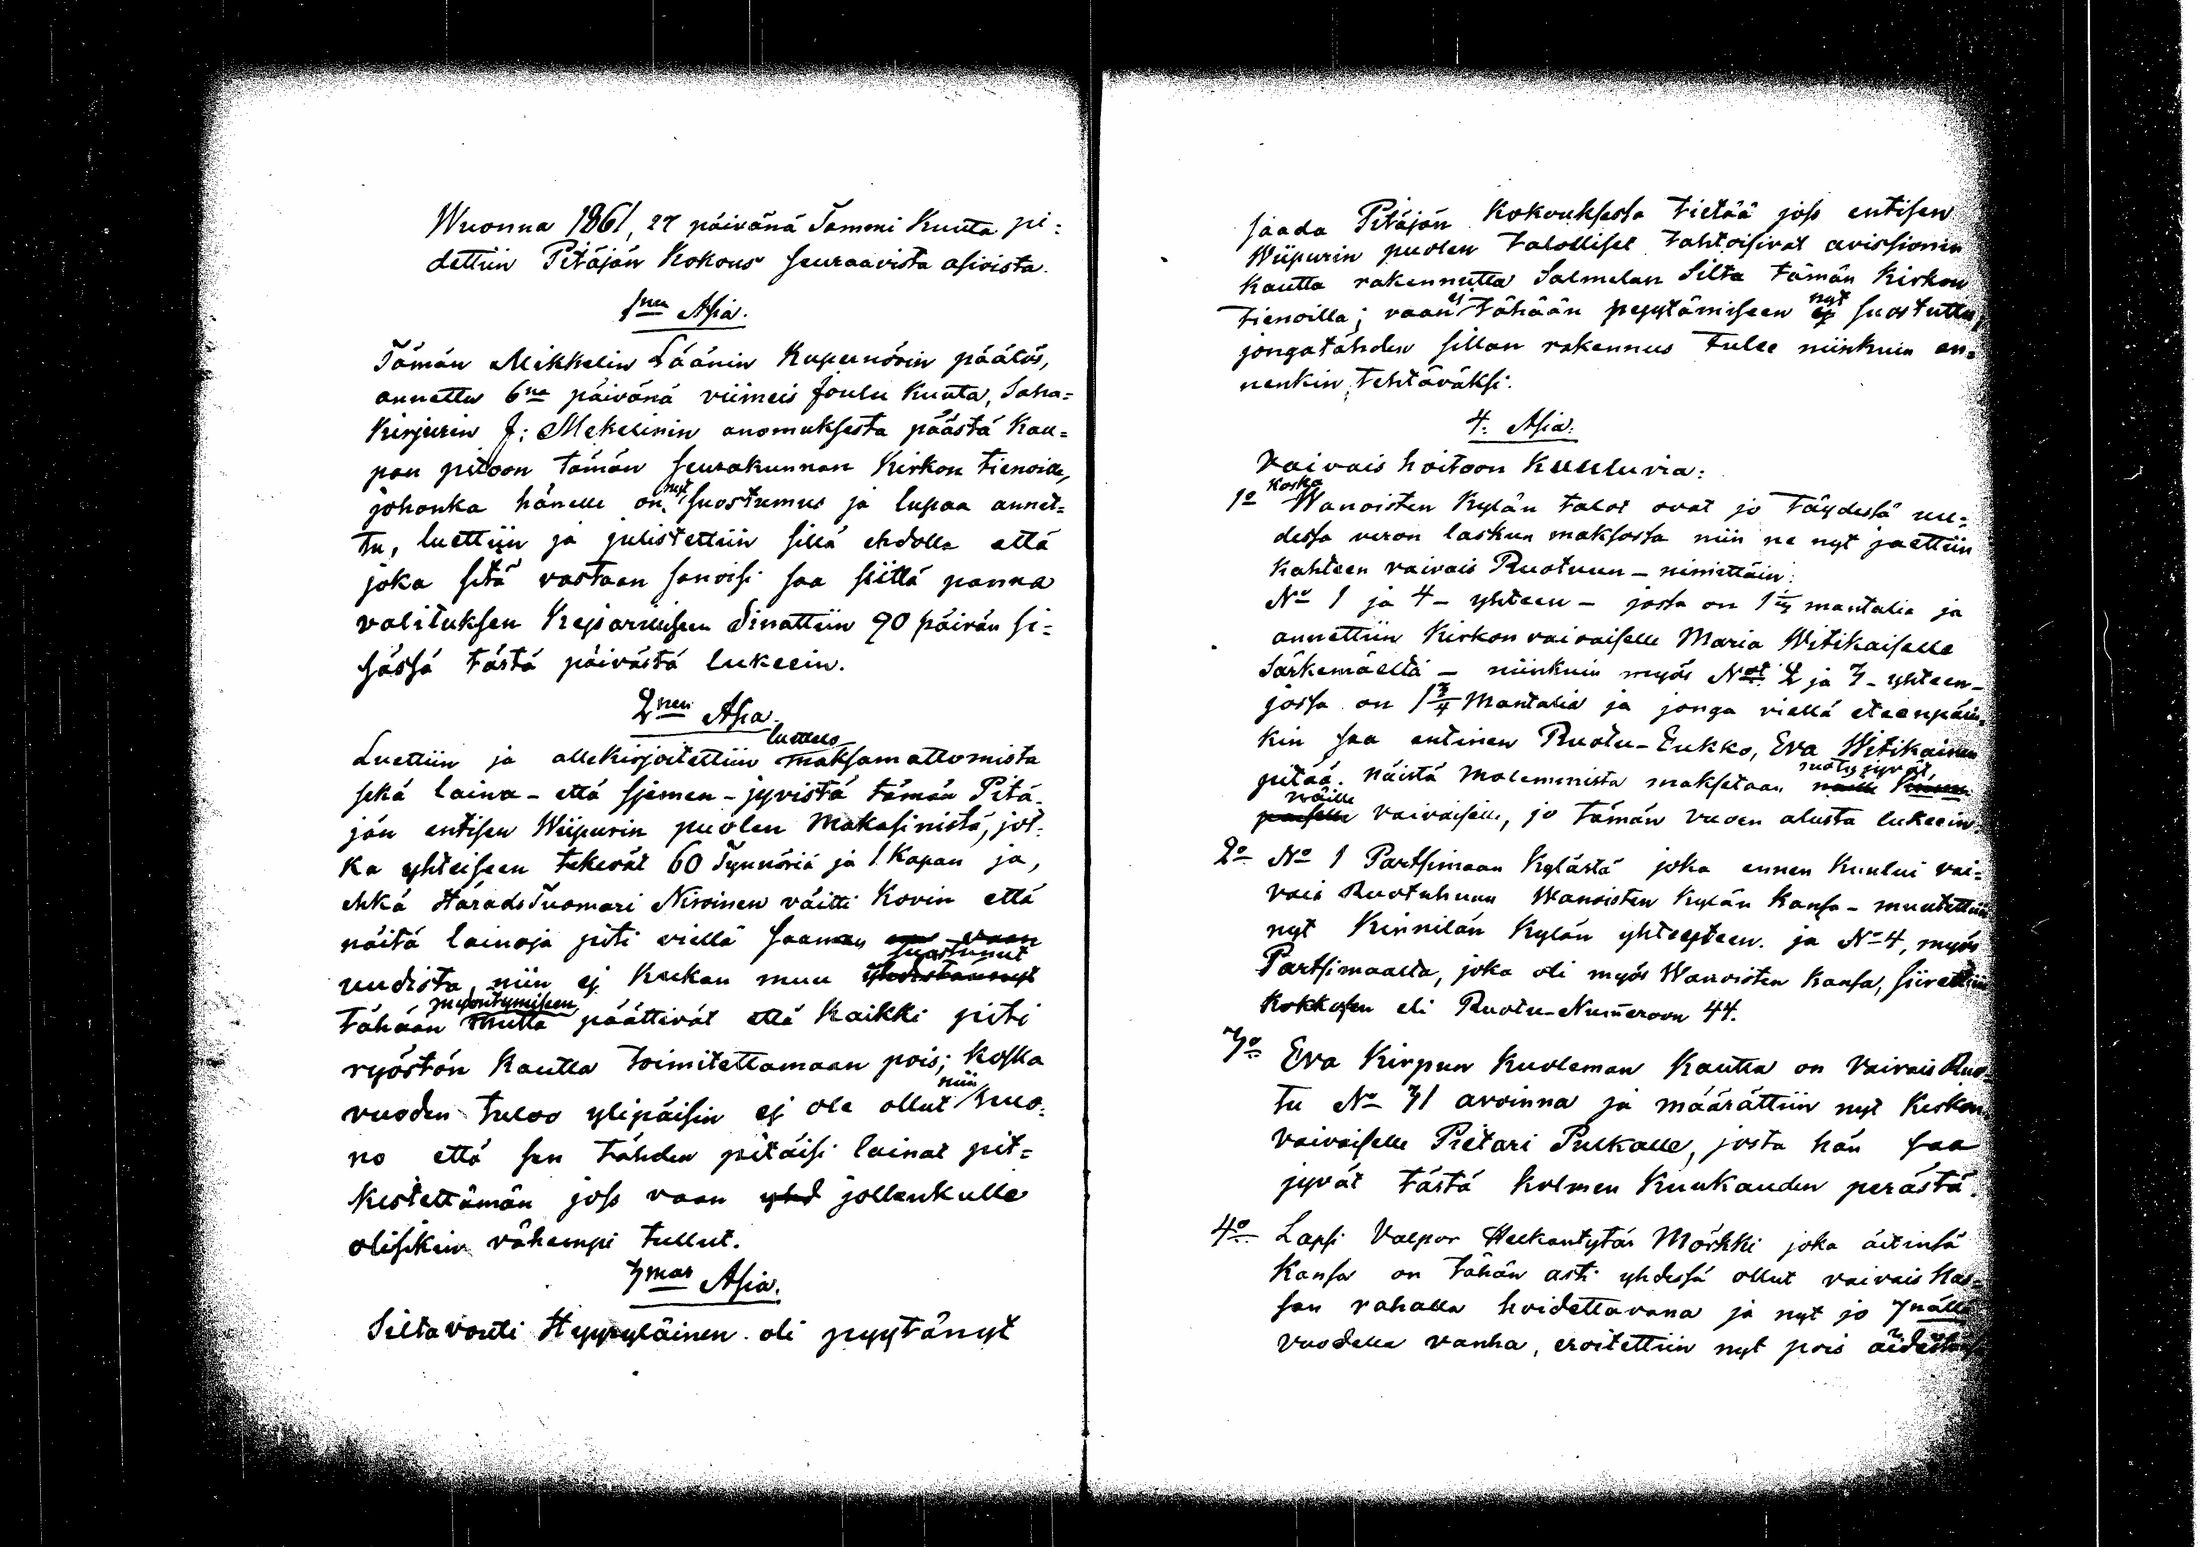 Wuonna 1861, 27 päivänä Tammi Kuuta pi:
dettiin Pitäjän Kokous seuraavista asioista.
1nen Asia.
Tämän Mikkelin Läänin Kupernörin päätös,
annettu 6na päivänä viimeis Joulu Kuuta, Saha=
Kirjurin J: Mekelinin anomuksesta päästä Kau=
pan pitoon tämän seurakunnan Kirkon tienoille,
johonka hänelle on nyt suostumus ja lupaa annet=
tu, luettiin ja julistettiin sillä ehdolla että
joka sitä vastaan sanoisi saa siittä panna
valituksen Kejsarillisen Sinattiin 90 päivän si=
sässä tästä päivästä lukeein.
2nen Asia.
Luettiin ja allekirjoitettiin luettelo maksamattomista
sekä laina - että sjemen - jyvistä tämän Pitä-
jän entisen Wiipurin puolen Makasinistä, jot-
ka yhteiseen tekevät 60 Tynnöriä ja 1. Kapan ja,
ehkä HäradsTuomari Nivoinen väitti kovin että
näitä lainoja piti viellä saaman
uudista, niin ej kukan muu suostunut
tähään myöntymiseen päättivät että kaikki piti
ryöstön kautta toimitettamaan pois; koska
vuoden tuloo ylipäisin ej ole ollut niin huo-
no että sen tähden pitäisi lainat pit=
kistettämän joss vaan yhd jollenkulle
olisikin vähempi tullut.
3mas Asia.
Siltavouti Hyyryläinen oli pyytänyt
saada Pitäjän Kokouksessa tietää joss entisen
Wiipurin puolen talolliset tahtoisivat avissionin
kautta rakennutta Salmelan Silta tämän Kirkon
tienoilla; vaan tähään pyytämiseen ej nyt suostuttu,
jongatähden sillan rakennus tulee niinkuin en=
nenkin tehtäväksi.
4. Asia.
Vaivais hoitoon kuuluvia:
1o koska Wanoisten Kylän talot ovat jo täydessä uu=
dessa veron laskun maksossa niin ne nyt jaettiin
kahteen vaivais Ruotuun - nimittäin:
No 1 ja 4 - yhteen - josta on 1 1/4 mantalia ja
annettiin Kirkon vaivaiselle Maria Witikaiselle
Särkemäeltä - niinkuin myös Not 2 ja 3 - yhteen -
jossa on 1 3/4 Mantalia ja jonga viellä eteenpäin=
kin saa entinen Ruotu-Eukko, Eva Witikainen
pitää. näistä molemmista maksetaan ruotu jyvät
näille vaivaiselle, jo tämän vuoen alusta lukeein.
2o No 1 Partsimaan Kylästä joka ennen kuului vai=
vais Ruotuhuun Wanoisten Kylän kansa - muutettiin
nyt Kinnilän Kylän yhteyteen. ja No 4, myös
Partsimaalta, joka oli myös Wanoisten kansa, siirettiin
Kokkosen eli Ruotu-Numeroon 44.
3o Eva Kirpun kuoleman kautta on Vaivais Ruo=
tu No 31 avoinna ja määrättiin nyt Kirkon
vaivaiselle Pietari Pulkalle, josta hän saa
jyvät tästä kolmen kuukauden perästä.
4o Lapsi Valpor Heikantytär Mörkki joka äitinsä
kansa on tähän asti yhdessä ollut vaivais Kas=
san rahalla hoidettavana ja nyt jo 7nällä
vuodella vanha, eroitettiin nyt pois äidistänsä